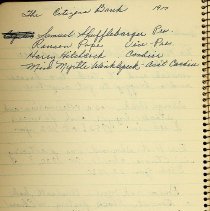 The Citizens Bank 19
Samuel Shufflebarger Pres.
Ransom Pope Vice-Pres.
Harry Hitchcock Cashier
Miss Myrtle Winklepeck - Asst Cashier